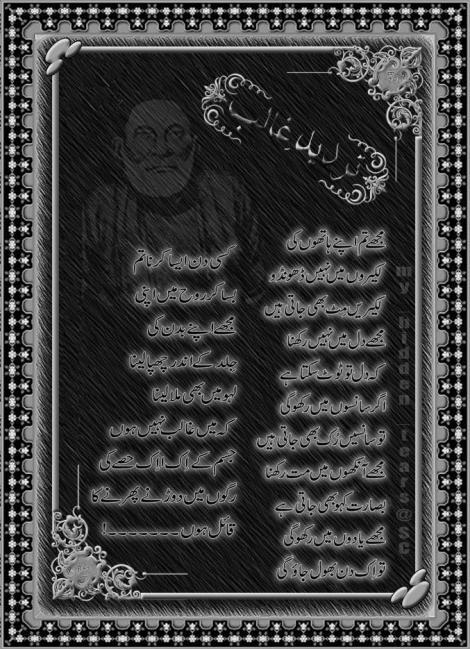 نذر دیدل غالب
مجھے تم اپنے ہاتھوں کی
لکیروں میں نہیں ڈھونڈو
لکیریں مٹ بھی جاتی ہیں
مجھے دل میں نہیں رکھنا
کہ دل تو ٹوٹ سکتا ہے
اگر سانسوں میں رکھوگی
تو سانسیں رُک بھی جاتی ہیں
مجھے آنکھوں میں مت رکھنا
بصارت کھو بھی جاتی ہے
مجھے یادوں میں رکھوگی
تو اک دن بھول جاؤ گی
کسی دن ایسا کرنا تم
بسا کر روح میں اپنی
مجھے اپنے بدن کی
جلد کے اندر چھپا لینا
لہو میں بھی ملا لینا
کہ میں غالب نہیں ہوں
جسم کے اک اک حصے کی
رگوں میں دوڑنے پھرنے کا
قائل ہوں -------!
my hidden tears@sc